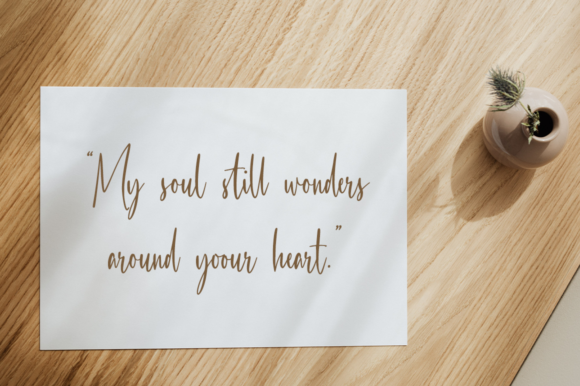 “My soul still wonders
around yoour heart.”